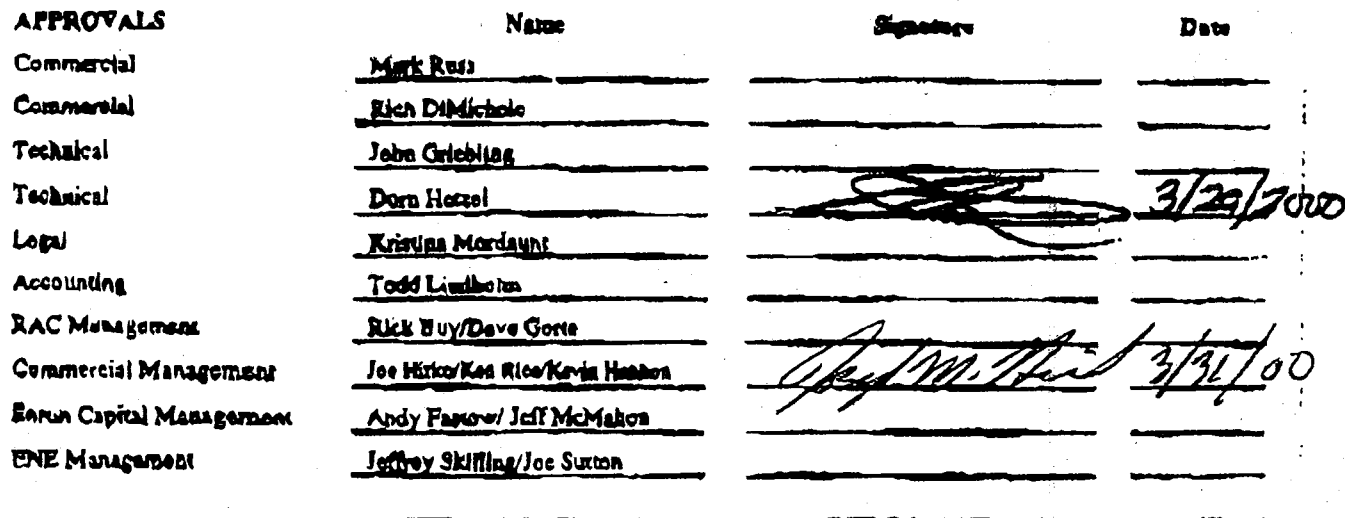 APPROVALS Name Signature Date
Commercial Mark Russ
Commercial Rich DiMichele
Technical John Griebling
Technical Dorn Hetzel 3/29/2000
Legal Kristina Mordaunt
Accounting Todd Lindholm
RAC Management Rick Buy/Dave Gorte
Commercial Management Joe Hirko/Ken Rice/Kevin Hannon 3/31/00
Enron Capital Management Andy Fastow/ Jeff McMahon
ENE Management Jeffrey Skilling/Joe Sutton